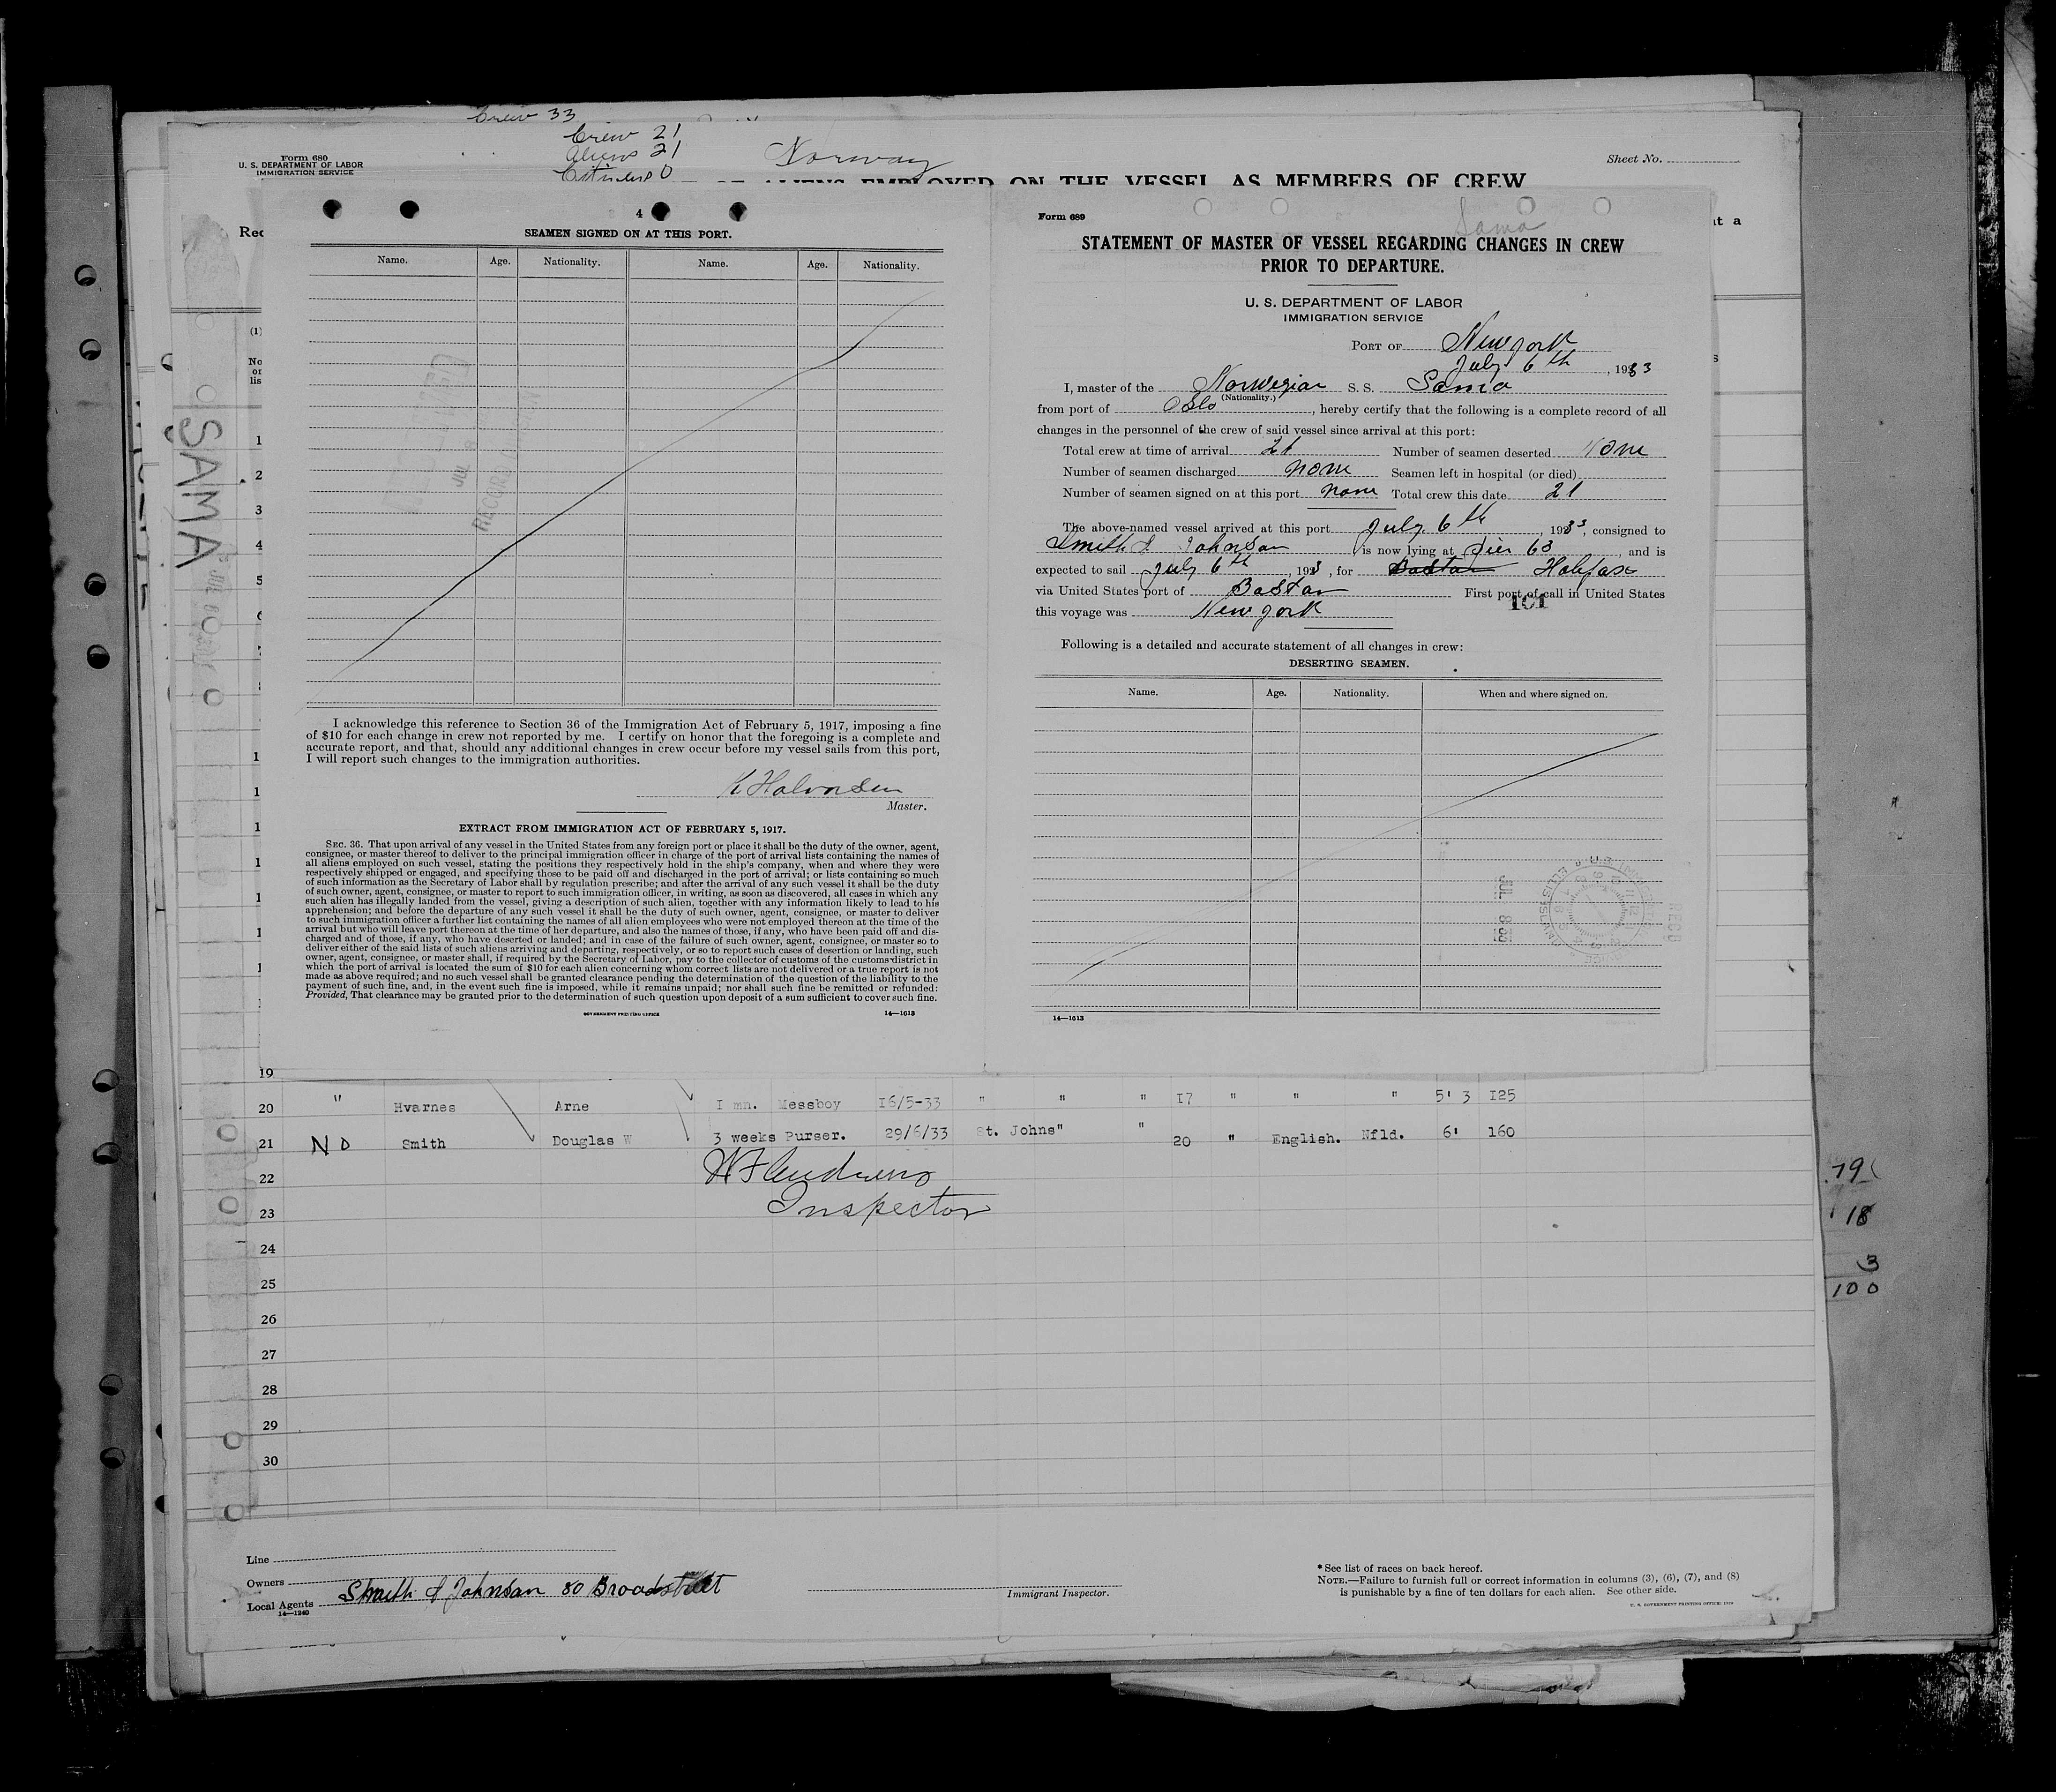 Crew 33
Crew 21
Aliens 21
Citizens 0
Norway
Form 680
U. S. DEPARTMENT OF LABOR
IMMIGRATION SERVICE
Sheet No.
OF ALIENS EMPLOYED ON THE VESSEL AS MEMBERS OF CREW
SAMA
4
SEAMEN SIGNED ON AT THIS PORT.
Name. Age. Nationality. Name. Age. Nationality.
I acknowledge this reference to Section 36 of the Immigration Act of February 5, 1917, imposing a fine
of $10 for each change in crew not reported by me. I certify on honor that the foregoing is a complete and
accurate report, and that, should any additional changes in crew occur before my vessel sails from this port,
I will report such changes to the immigration authorities.
K Halvorsen
Master.
EXTRACT FROM IMMIGRATION ACT OF FEBRUARY 5, 1917.
SEC. 36. That upon arrival of any vessel in the United States from any foreign port or place it shall be the duty of the owner, agent,
consignee, or master thereof to deliver to the principal immigration officer in charge of the port of arrival lists containing the names of
all aliens employed on such vessel, stating the positions they respectively hold in the ship's company, when and where they were
respectively shipped or engaged, and specifying those to be paid off and discharged in the port of arrival; or lists containing so much
of such information as the Secretary of Labor shall by regulation prescribe; and after the arrival of any such vessel it shall be the duty
of such owner, agent, consignee, or master to report to such immigration officer, in writing, as soon as discovered, all cases in which any
such alien has illegally landed from the vessel, giving a description of such alien, together with any information likely to lead to his
apprehension; and before the departure of any such vessel it shall be the duty of such owner, agent, consignee, or master to deliver
to such immigration officer a further list containing the names of all alien employees who were not employed thereon at the time of the
arrival but who will leave port thereon at the time of her departure, and also the names of those, if any, who have been paid off and dis-
charged and of those, if any, who have deserted or landed; and in case of the failure of such owner, agent, consignee, or master so to
deliver either of the said lists of such aliens arriving and departing, respectively, or so to report such cases of desertion or landing, such
owner, agent, consignee, or master shall, if required by the Secretary of Labor, pay to the collector of customs of the customs district in
which the port of arrival is located the sum of $10 for each alien concerning whom correct lists are not delivered or a true report is not
made as above required; and no such vessel shall be granted clearance pending the determination of the question of the liability to the
payment of such fine, and, in the event such fine is imposed, while it remains unpaid; nor shall such fine be remitted or refunded:
Provided, That clearance may be granted prior to the determination of such question upon deposit of a sum sufficient to cover such fine.
GOVERNMENT PRINTING OFFICE 14—1613
Form 689
Sama
STATEMENT OF MASTER OF VESSEL REGARDING CHANGES IN CREW
PRIOR TO DEPARTURE.
U. S. DEPARTMENT OF LABOR
IMMIGRATION SERVICE
PORT OF New york
July 6th, 1933
I, master of the Norwegian S. S. Sama
(Nationality.)
from port of Oslo, hereby certify that the following is a complete record of all
changes in the personnel of the crew of said vessel since arrival at this port:
Total crew at time of arrival 21 Number of seamen deserted None
Number of seamen discharged none Seamen left in hospital (or died)
Number of seamen signed on at this port none Total crew this date 21
The above-named vessel arrived at this port July 6th, 1933, consigned to
Smith & Johnson is now lying at Pier 63, and is
expected to sail July 6th, 193, for Boston Halifax
via United States port of Boston First port of call in United States
101
this voyage was New york
Following is a detailed and accurate statement of all changes in crew:
DESERTING SEAMEN.
Name. Age. Nationality. When and where signed on.
14—1613
19
20 " Hvarnes Arne I mn. Messboy I6/5-33 " " " I7 " " " 5' 3 I25
21 NO Smith Douglas W 3 weeks Purser. 29/6/33 St. Johns" " 20 " English. Nfld. 6' 160
22 Inspector
23
24
25
26
27
28
29
30
79
18
3
100
Line
Owners
Local Agents Smith & Johnson 80 Broadstreet
14—1240
Immigrant Inspector.
* See list of races on back hereof.
NOTE.—Failure to furnish full or correct information in columns (3), (6), (7), and (8)
is punishable by a fine of ten dollars for each alien. See other side.